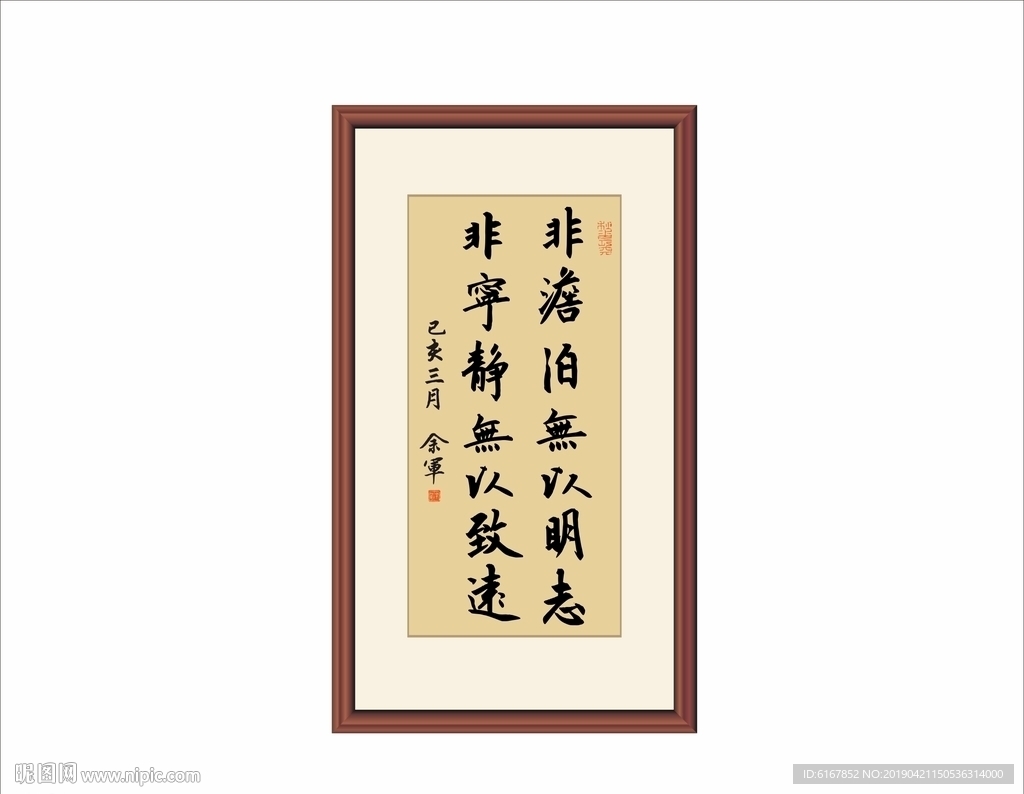 非澹泊無以明志
非寧靜無以致遠
己亥三月 余軍
昵图网 www.nipic.com
ID:6167852 NO:20190421150536314000